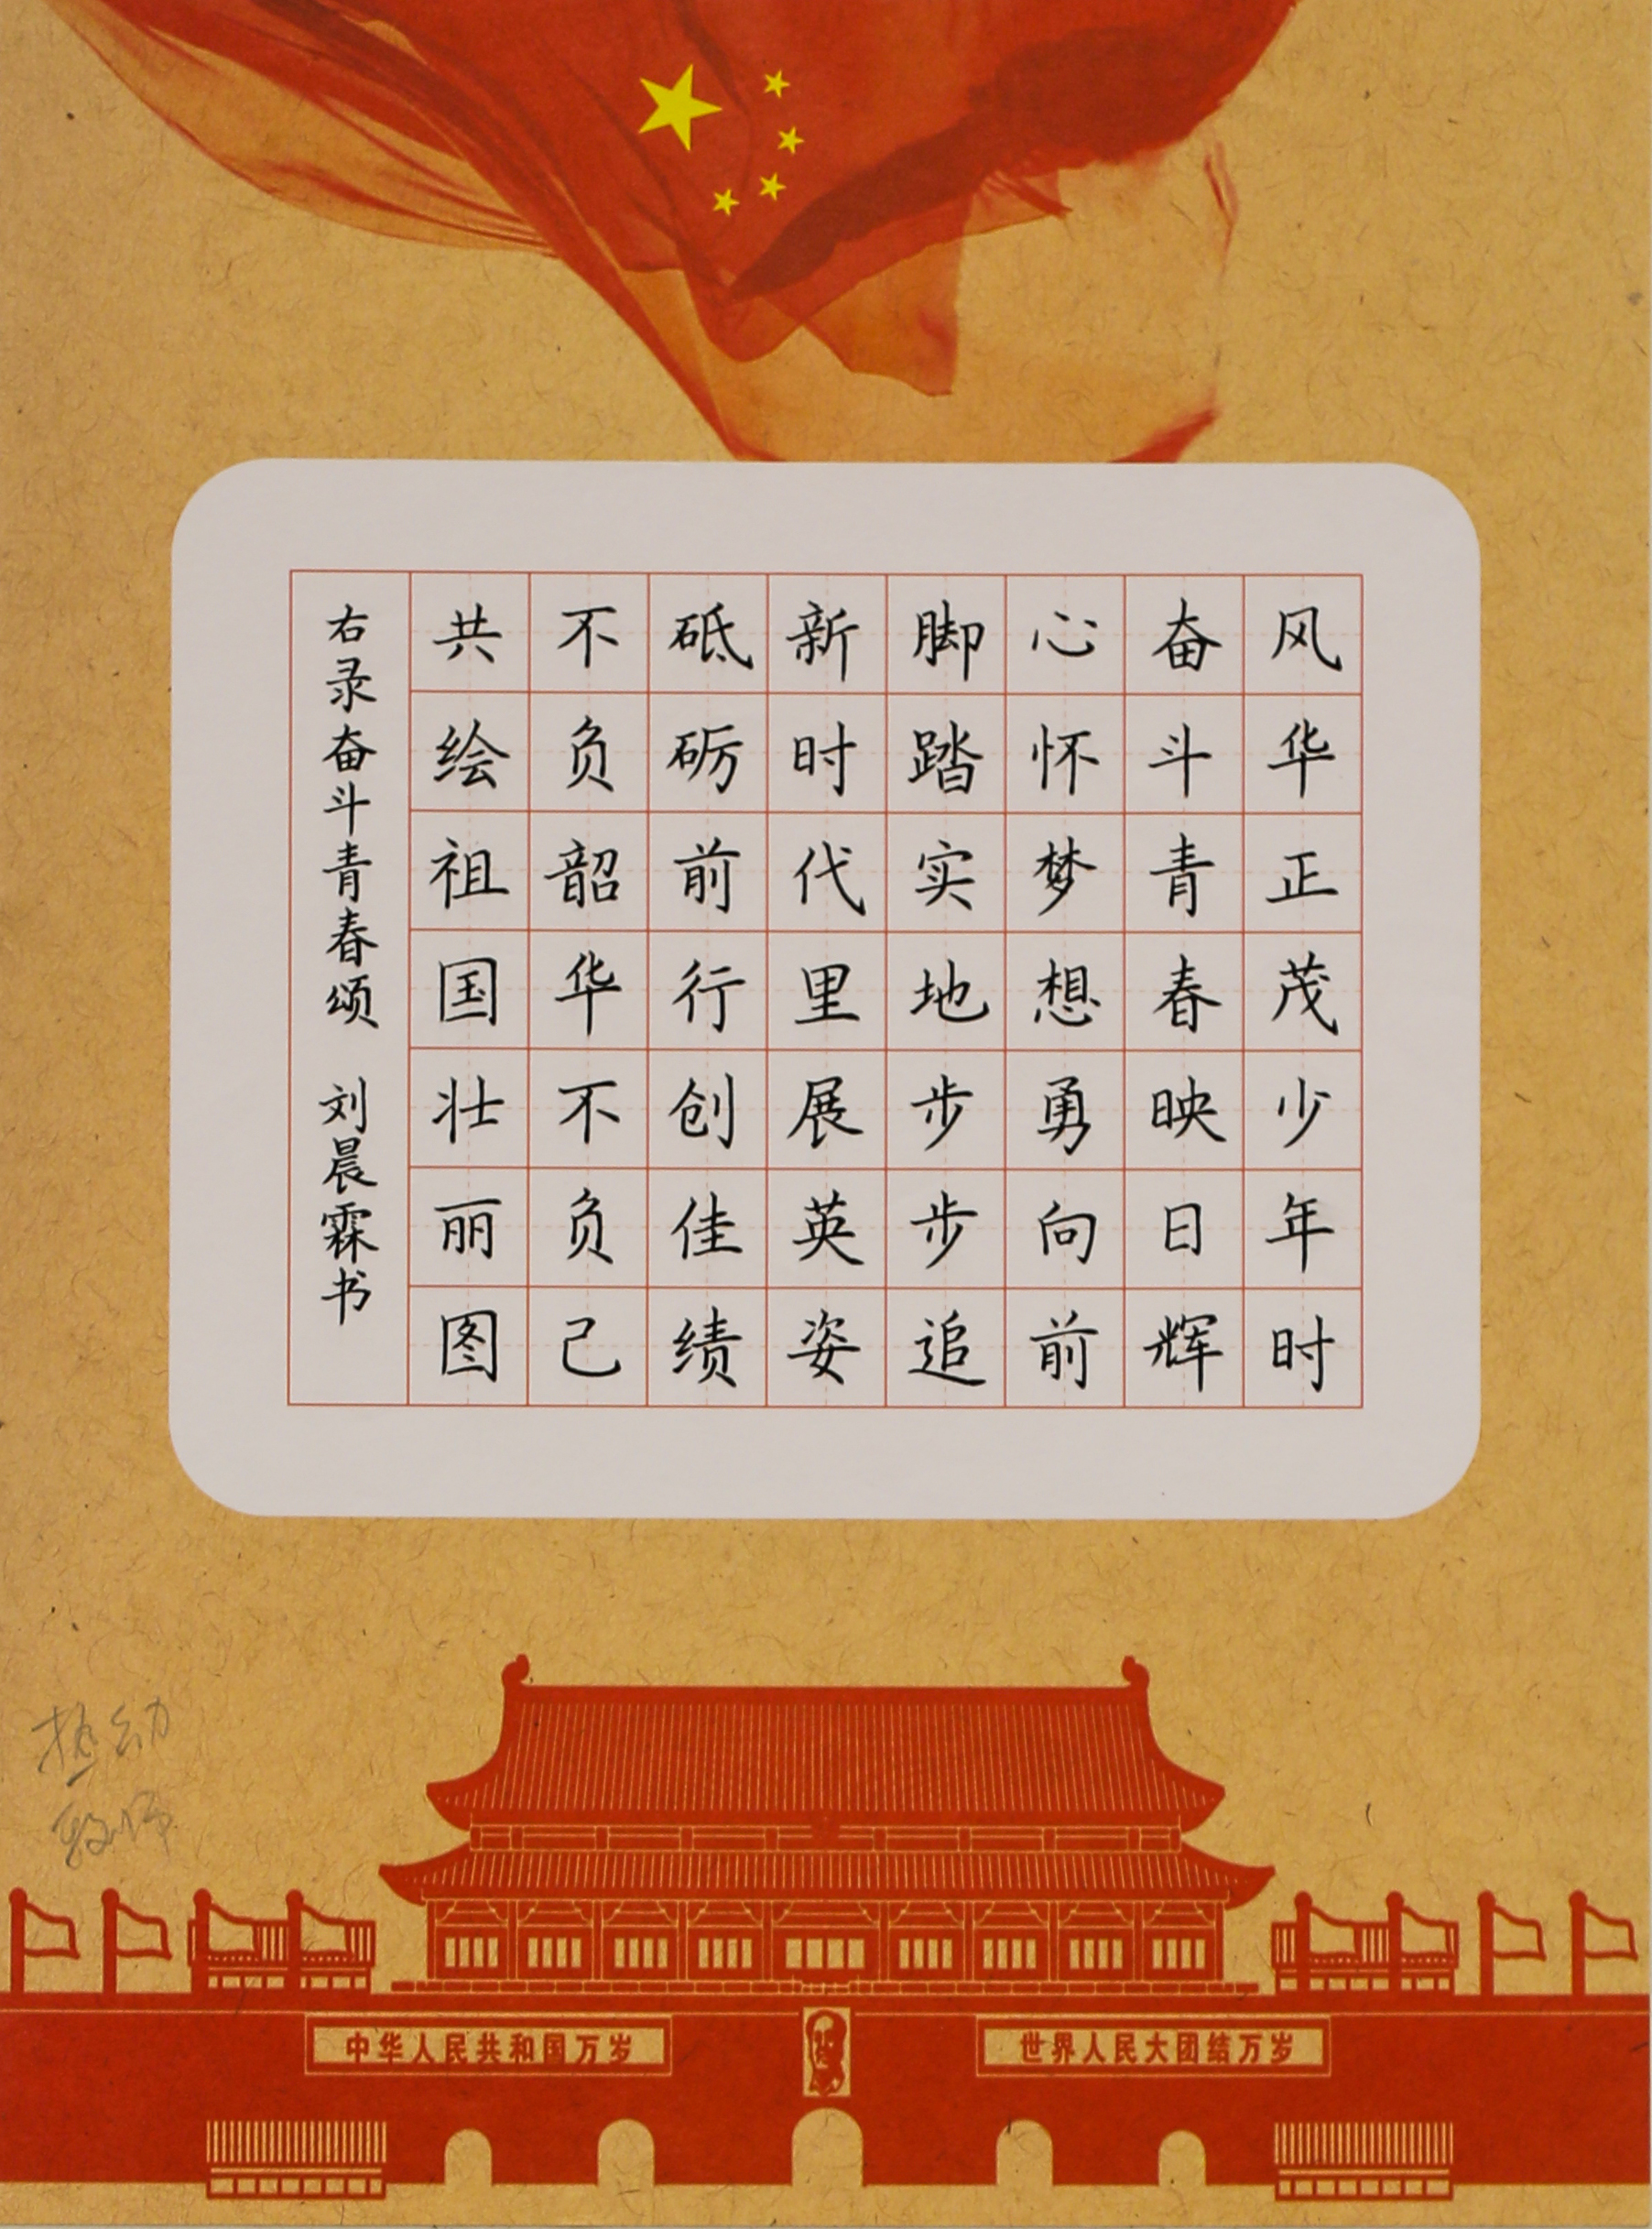 风华正茂少年时
奋斗青春映日辉
心怀梦想勇向前
脚踏实地步步追
新时代里展英姿
砥砺前行创佳绩
不负韶华不负己
共绘祖国壮丽图
右录奋斗青春颂 刘晨霖书
教师
中华人民共和国万岁
世界人民大团结万岁